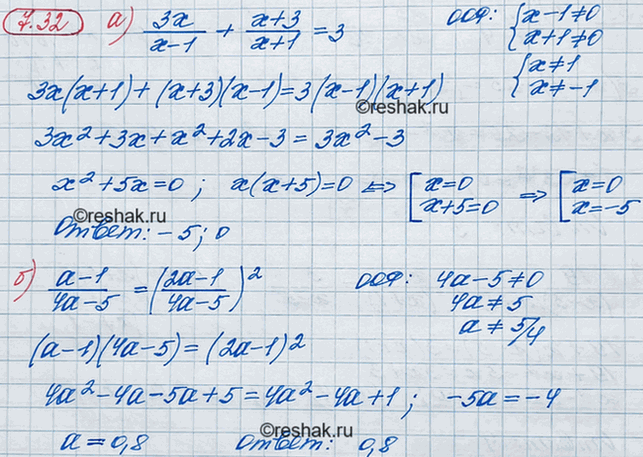 7.32 а) 3x/(x-1) + (x+3)/(x+1) = 3 ООФ: { x-1≠0
{ x+1≠0
3x(x+1) + (x+3)(x-1) = 3(x-1)(x+1) { x≠1
{ x≠-1
©reshak.ru
3x² + 3x + x² + 2x - 3 = 3x² - 3
x² + 5x = 0 ; x(x+5) = 0 ⇔ [ x=0 ⇒ [ x=0
[ x+5=0 [ x=-5
©reshak.ru
Ответ: -5; 0
б) (a-1)/(4a-5) = ((2a-1)/(4a-5))² ООФ: 4a-5≠0
4a≠5
a≠5/4
(a-1)(4a-5) = (2a-1)²
4a² - 4a - 5a + 5 = 4a² - 4a + 1 ; -5a = -4
©reshak.ru
a = 0,8 Ответ: 0,8